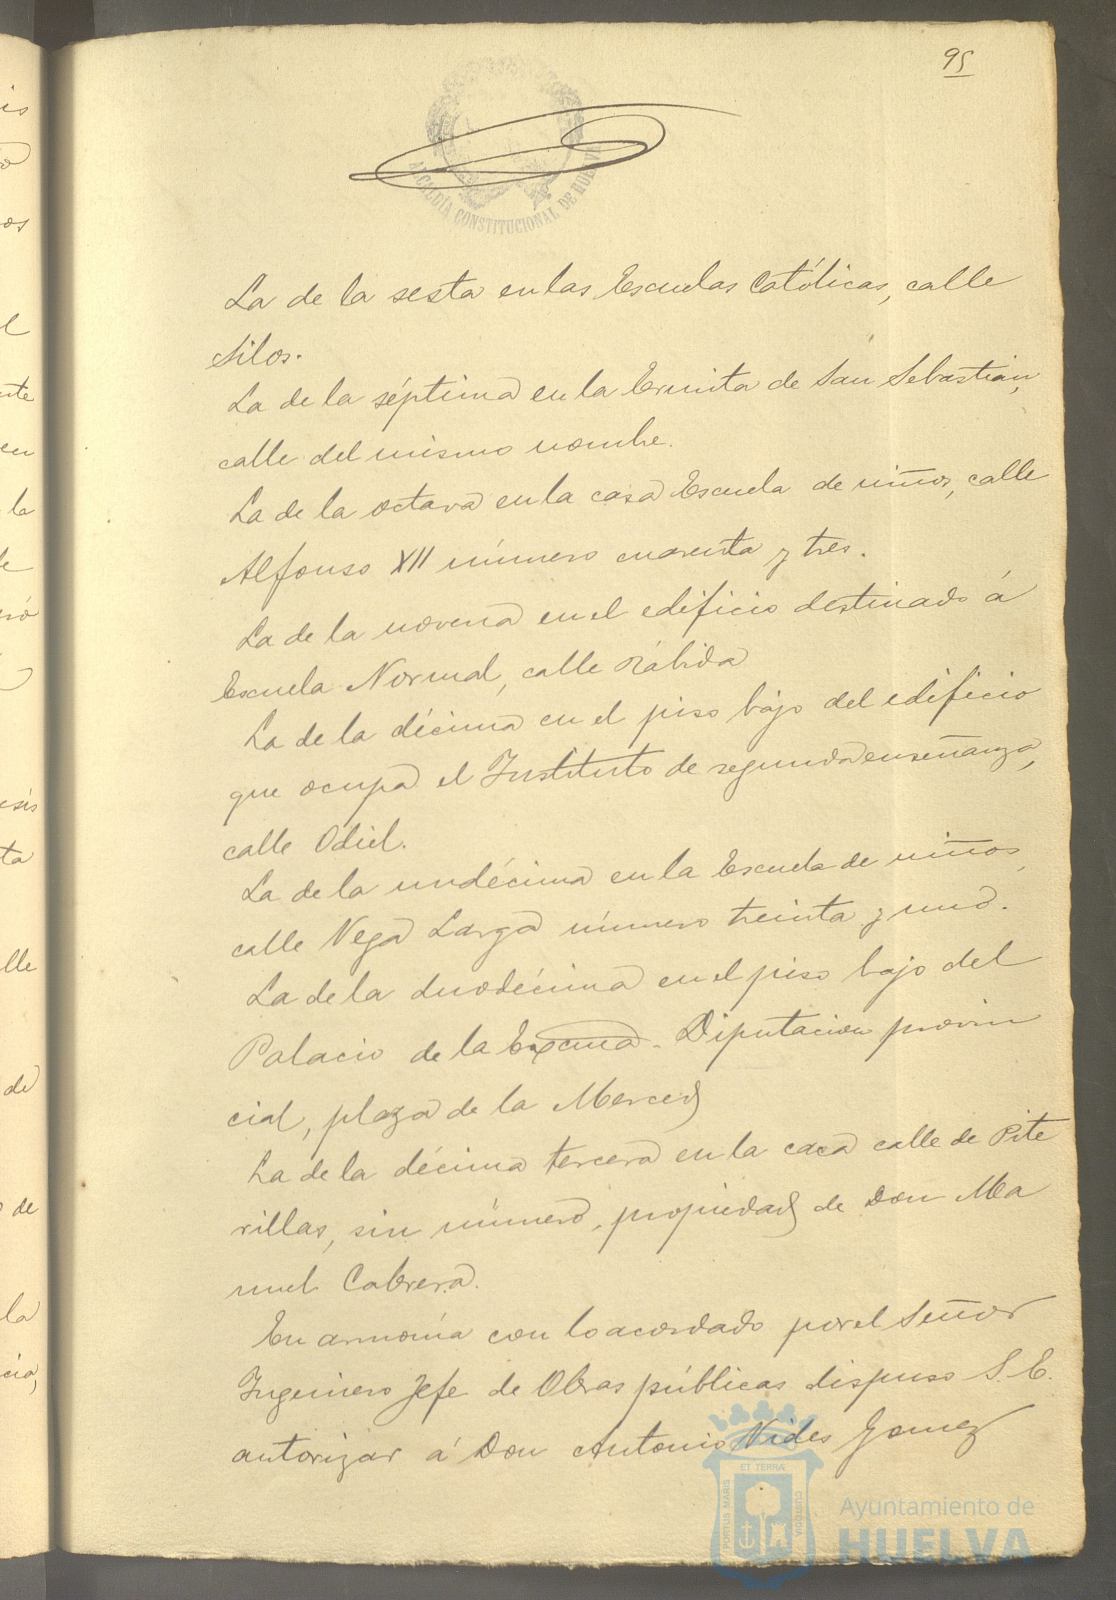 95
ALCALDÍA CONSTITUCIONAL DE HUELVA
La de la sesta en las Escuelas Católicas, calle
Silos.
La de la séptima en la Ermita de San Sebastián,
calle del mismo nombre.
La de la octava en la casa Escuela de niños, calle
Alfonso XII número cuarenta y tres.
La de la novena en el edificio destinado á
Escuela Normal, calle Rábida
La de la décima en el piso bajo del edificio
que ocupa el Instituto de segunda enseñanza,
calle Odiel.
La de la undécima en la Escuela de niños,
calle Vega Larga número treinta y uno.
La de la duodécima en el piso bajo del
Palacio de la Excma. Diputacion provin
cial, plaza de la Merced
La de la décima tercera en la casa calle de Pite
rillas, sin número, propiedad de Don Ma
nuel Cabrera.
En armonía con lo acordado por el Señor
Ingeniero Jefe de Obras públicas dispuso S. E.
autorizar á Don Antonio Vides Gomez
PORTUS MARIS ET TERRÆ CUSTODIA
Ayuntamiento de
HUELVA